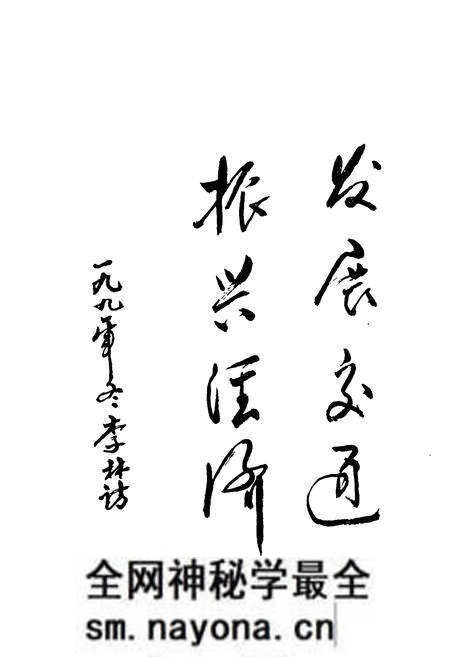 发展交通
振兴经济
一九九年冬李林访
全网神秘学最全
sm.nayona.cn